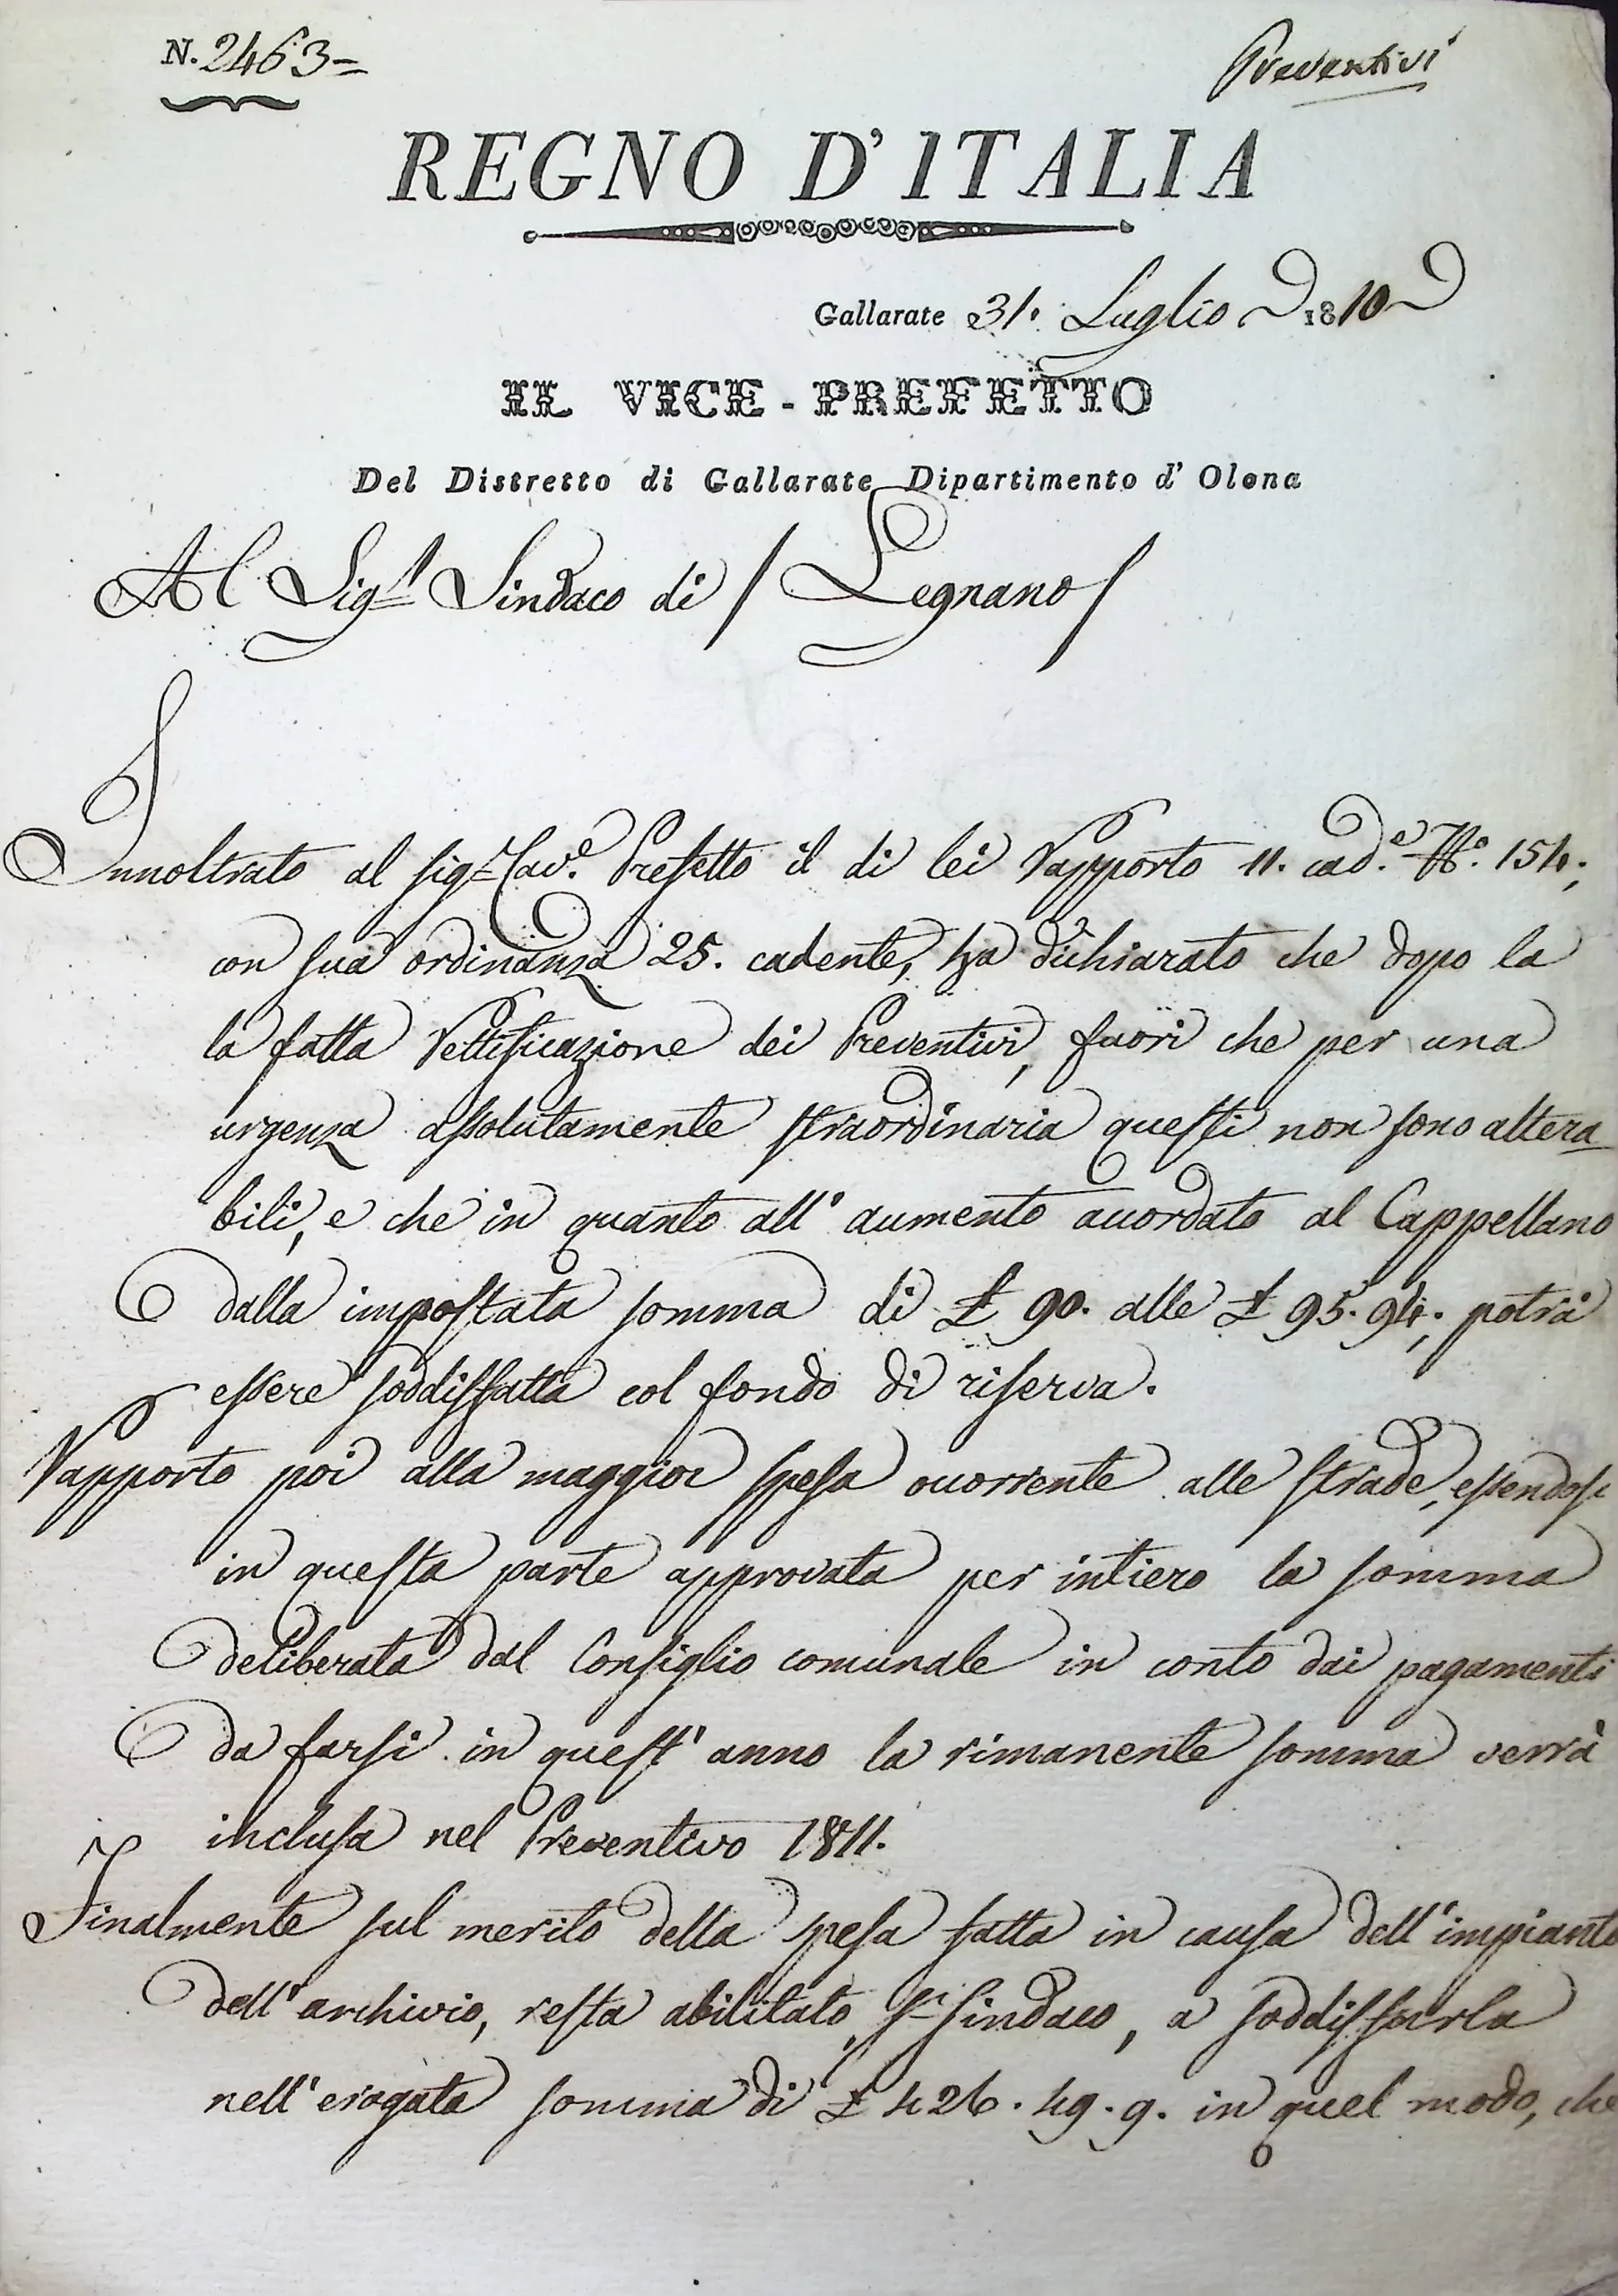 N. 2463=
Preventivi
REGNO D'ITALIA
Gallarate 31. Luglio 1810
IL VICE-PREFETTO
Del Distretto di Gallarate Dipartimento d'Olona
Al Sig.r Sindaco di Legnano
Innoltrato al sig.r Cav.e Prefetto il di lei Rapporto 11. cad.e N.o 154;
con sua ordinanza 25. cadente, ha dichiarato che dopo la
la fatta Rettificazione dei Preventivi, fuori che per una
urgenza assolutamente straordinaria questi non sono altera
bili, e che in quanto all'aumento accordato al Cappellano
dalla impostata somma di £ 90. alle £ 95. 94; potrà
essere soddisfatta col fondo di riserva.
Rapporto poi alla maggior spesa occorrente alle strade, essendosi
in questa parte approvata per intiero la somma
deliberata dal Consiglio comunale in conto dai pagamenti
da farsi in quest'anno la rimanente somma verrà
inclusa nel Preventivo 1811.
Finalmente sul merito della spesa fatta in causa dell'impianto
dell'archivio, resta abilitato, S.r Sindaco, a soddisfarla
nell'erogata somma di £ 426. 49. 9. in quel modo, che